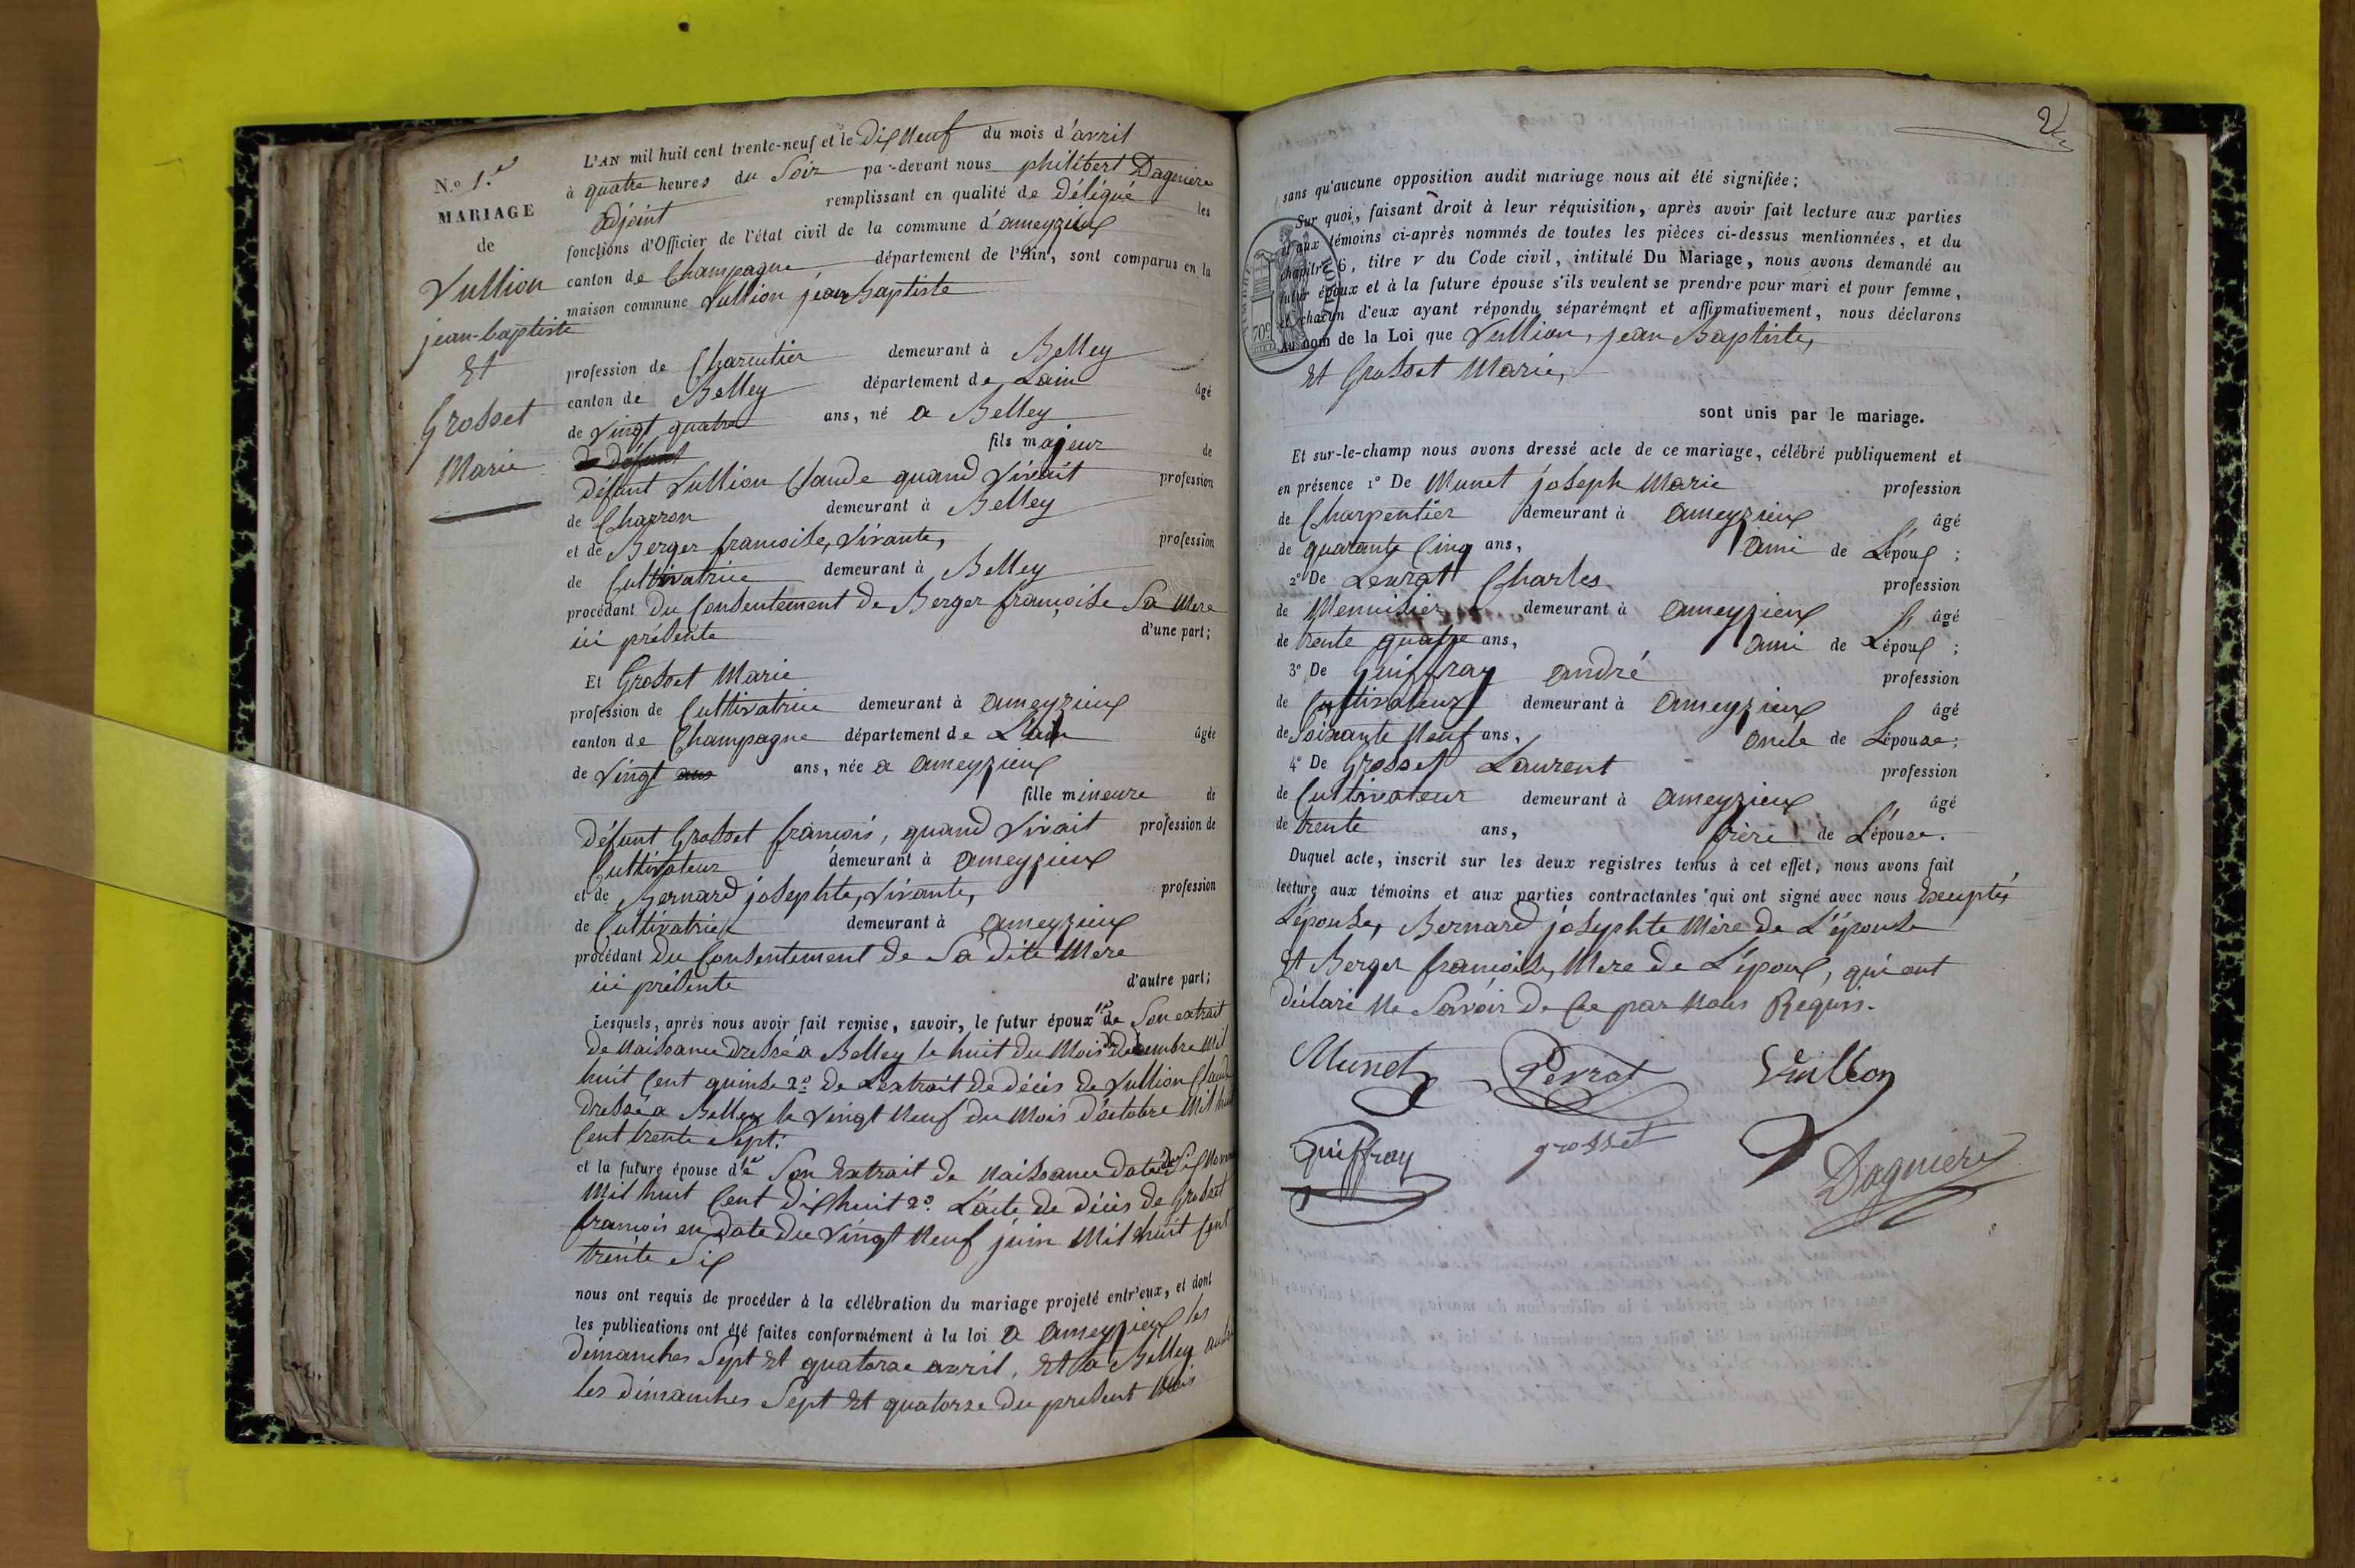 N.º 1.er
MARIAGE
de
Vullion
jean-baptiste
Et
Grosset
Marie
L'AN mil huit cent trente-neuf et le Dix Neuf du mois d'avril
à quatre heures du Soir par-devant nous philibert Dagniere
adjoint remplissant en qualité de délégué les
fonctions d'Officier de l'état civil de la commune d'ameyzieux
canton de Champagne département de l'Ain, sont comparus en la
maison commune Vullion jean Baptiste
profession de Charcutier demeurant à Belley
canton de Belley département de Lain âgé
de vingt quatre ans, né a Belley
de défunt fils majeur de
défunt Vullion Claude quand vivait profession
de Charron demeurant à Belley
et de Berger francoise, vivante, profession
de Cultivatrice demeurant à Belley
procédant du Consentement de Berger françoise Sa Mere
ici présente d'une part;
Et Grosset Marie
profession de Cultivatrice demeurant à ameyzieux
canton de Champagne département de L'ain âgée
de vingt ans ans, née a ameyzieux
fille mineure de
défunt Grosset françois, quand vivait profession de
Cultivateur demeurant à ameyzieux
et de Bernard josephte, vivante, profession
de Cultivatrice demeurant à ameyzieux
procédant du Consentement de Sa dite Mere
ici présente d'autre part;
Lesquels, après nous avoir fait remise, savoir, le futur époux 1º de Son extrait
de Naissance dressé a Belley le huit du Mois de decembre Mil
huit Cent quinse 2º de Lextrait de décès de Vullion Claude
dressé a Belley le vingt Neuf du Mois d'octobre Mil huit
Cent trente Sept.
et la future épouse d Son Extrait de Naissance daté
Mil huit Cent dix huit 2º L'acte de décès de Grosset
francois en date du vingt Neuf juin Mil huit Cent
trente Six
nous ont requis de procéder à la célébration du mariage projeté entr'eux, et dont
les publications ont été faites conformément à la loi a ameyzieux les
dimanches Sept Et quatorze avril, Et a Belley
les dimanches Sept Et quatorze du present Mois
2
sans qu'aucune opposition audit mariage nous ait été signifiée;
Sur quoi, faisant droit à leur réquisition, après avoir fait lecture aux parties
et aux témoins ci-après nommés de toutes les pièces ci-dessus mentionnées, et du
chapitre 6, titre V du Code civil, intitulé Du Mariage, nous avons demandé au
futur époux et à la future épouse s'ils veulent se prendre pour mari et pour femme,
et chacun d'eux ayant répondu séparément et affirmativement, nous déclarons
au nom de la Loi que Vullion, jean Baptiste,
Et Grosset Marie,
sont unis par le mariage.
Et sur-le-champ nous avons dressé acte de ce mariage, célébré publiquement et
en présence 1º De Munet joseph Marie profession
de Charpentier demeurant à ameyzieux âgé
de quarante Cinq ans, ami de L'époux ;
2º De Charles profession
de Menuisier demeurant à ameyzieux âgé
de trente quatre ans, ami de L'époux ;
3º De Guiffray andré profession
de Cultivateur demeurant à ameyzieux âgé
de Soixante Neuf ans, oncle de L'épouse;
4º De Grosset Laurent profession
de Cultivateur demeurant à ameyzieux âgé
de trente ans, frère de L'épouse.
Duquel acte, inscrit sur les deux registres tenus à cet effet, nous avons fait
lecture aux témoins et aux parties contractantes qui ont signé avec nous Exceptés
L'épouse, Bernard josephte Mère de L'épouse
Et Berger francoise, Mere de L'époux, qui ont
déclaré Ne Savoir de Ce par Nous Requis.
Munet Perrat Vuillon
Guiffray grosset
Dagniere